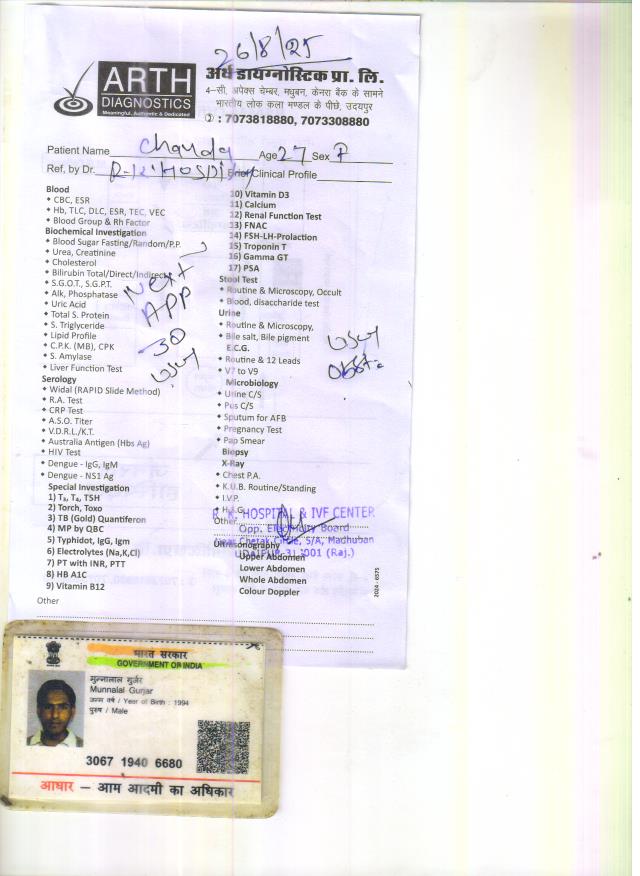 26/8/25
ARTH
DIAGNOSTICS
Meaningful, Authentic & Dedicated
अर्थ डायग्नोस्टिक प्रा. लि.
4–सी, अपेक्स चेम्बर, मधुबन, केनरा बैंक के सामने
भारतीय लोक कला मण्डल के पीछे, उदयपुर
: 7073818880, 7073308880
Patient Name Chanda Age 27 Sex F
Ref, by Dr. Brief Clinical Profile
Blood
CBC, ESR
Hb, TLC, DLC, ESR, TEC, VEC
Blood Group & Rh Factor
Biochemical Investigation
Blood Sugar Fasting/Random/P.P.
Urea, Creatinine
Cholesterol
Bilirubin Total/Direct/Indirect
S.G.O.T., S.G.P.T.
Alk, Phosphatase
Uric Acid
Total S. Protein
S. Triglyceride
Lipid Profile
C.P.K. (MB), CPK
S. Amylase
Liver Function Test
Serology
Widal (RAPID Slide Method)
R.A. Test
CRP Test
A.S.O. Titer
V.D.R.L./K.T.
Australia Antigen (Hbs Ag)
HIV Test
Dengue - IgG, IgM
Dengue - NS1 Ag
Special Investigation
1) T₃, T₄, TSH
2) Torch, Toxo
3) TB (Gold) Quantiferon
4) MP by QBC
5) Typhidot, IgG, Igm
6) Electrolytes (Na,K,Cl)
7) PT with INR, PTT
8) HB A1C
9) Vitamin B12
Other
Next
APP
30
USG
10) Vitamin D3
11) Calcium
12) Renal Function Test
13) FNAC
14) FSH-LH-Prolaction
15) Troponin T
16) Gamma GT
17) PSA
Stool Test
Routine & Microscopy, Occult
Blood, disaccharide test
Urine
Routine & Microscopy,
Bile salt, Bile pigment
E.C.G.
Routine & 12 Leads
V7 to V9
Microbiology
Urine C/S
Pus C/S
Sputum for AFB
Pregnancy Test
Pap Smear
Biopsy
X-Ray
Chest P.A.
K.U.B. Routine/Standing
I.V.P.
Other
Ultrasonography
Upper Abdomen
Lower Abdomen
Whole Abdomen
Colour Doppler
USG
Obst.
R. K. HOSPITAL & IVF CENTER
Opp. Electricity Board
Near Chetak Circle, 5/A, Madhuban
UDAIPUR-313001 (Raj.)
2024 - 6575
भारत सरकार
GOVERNMENT OF INDIA
मुन्नालाल गुर्जर
Munnalal Gurjar
जन्म वर्ष / Year of Birth : 1994
पुरुष / Male
3067 1940 6680
आधार – आम आदमी का अधिकार